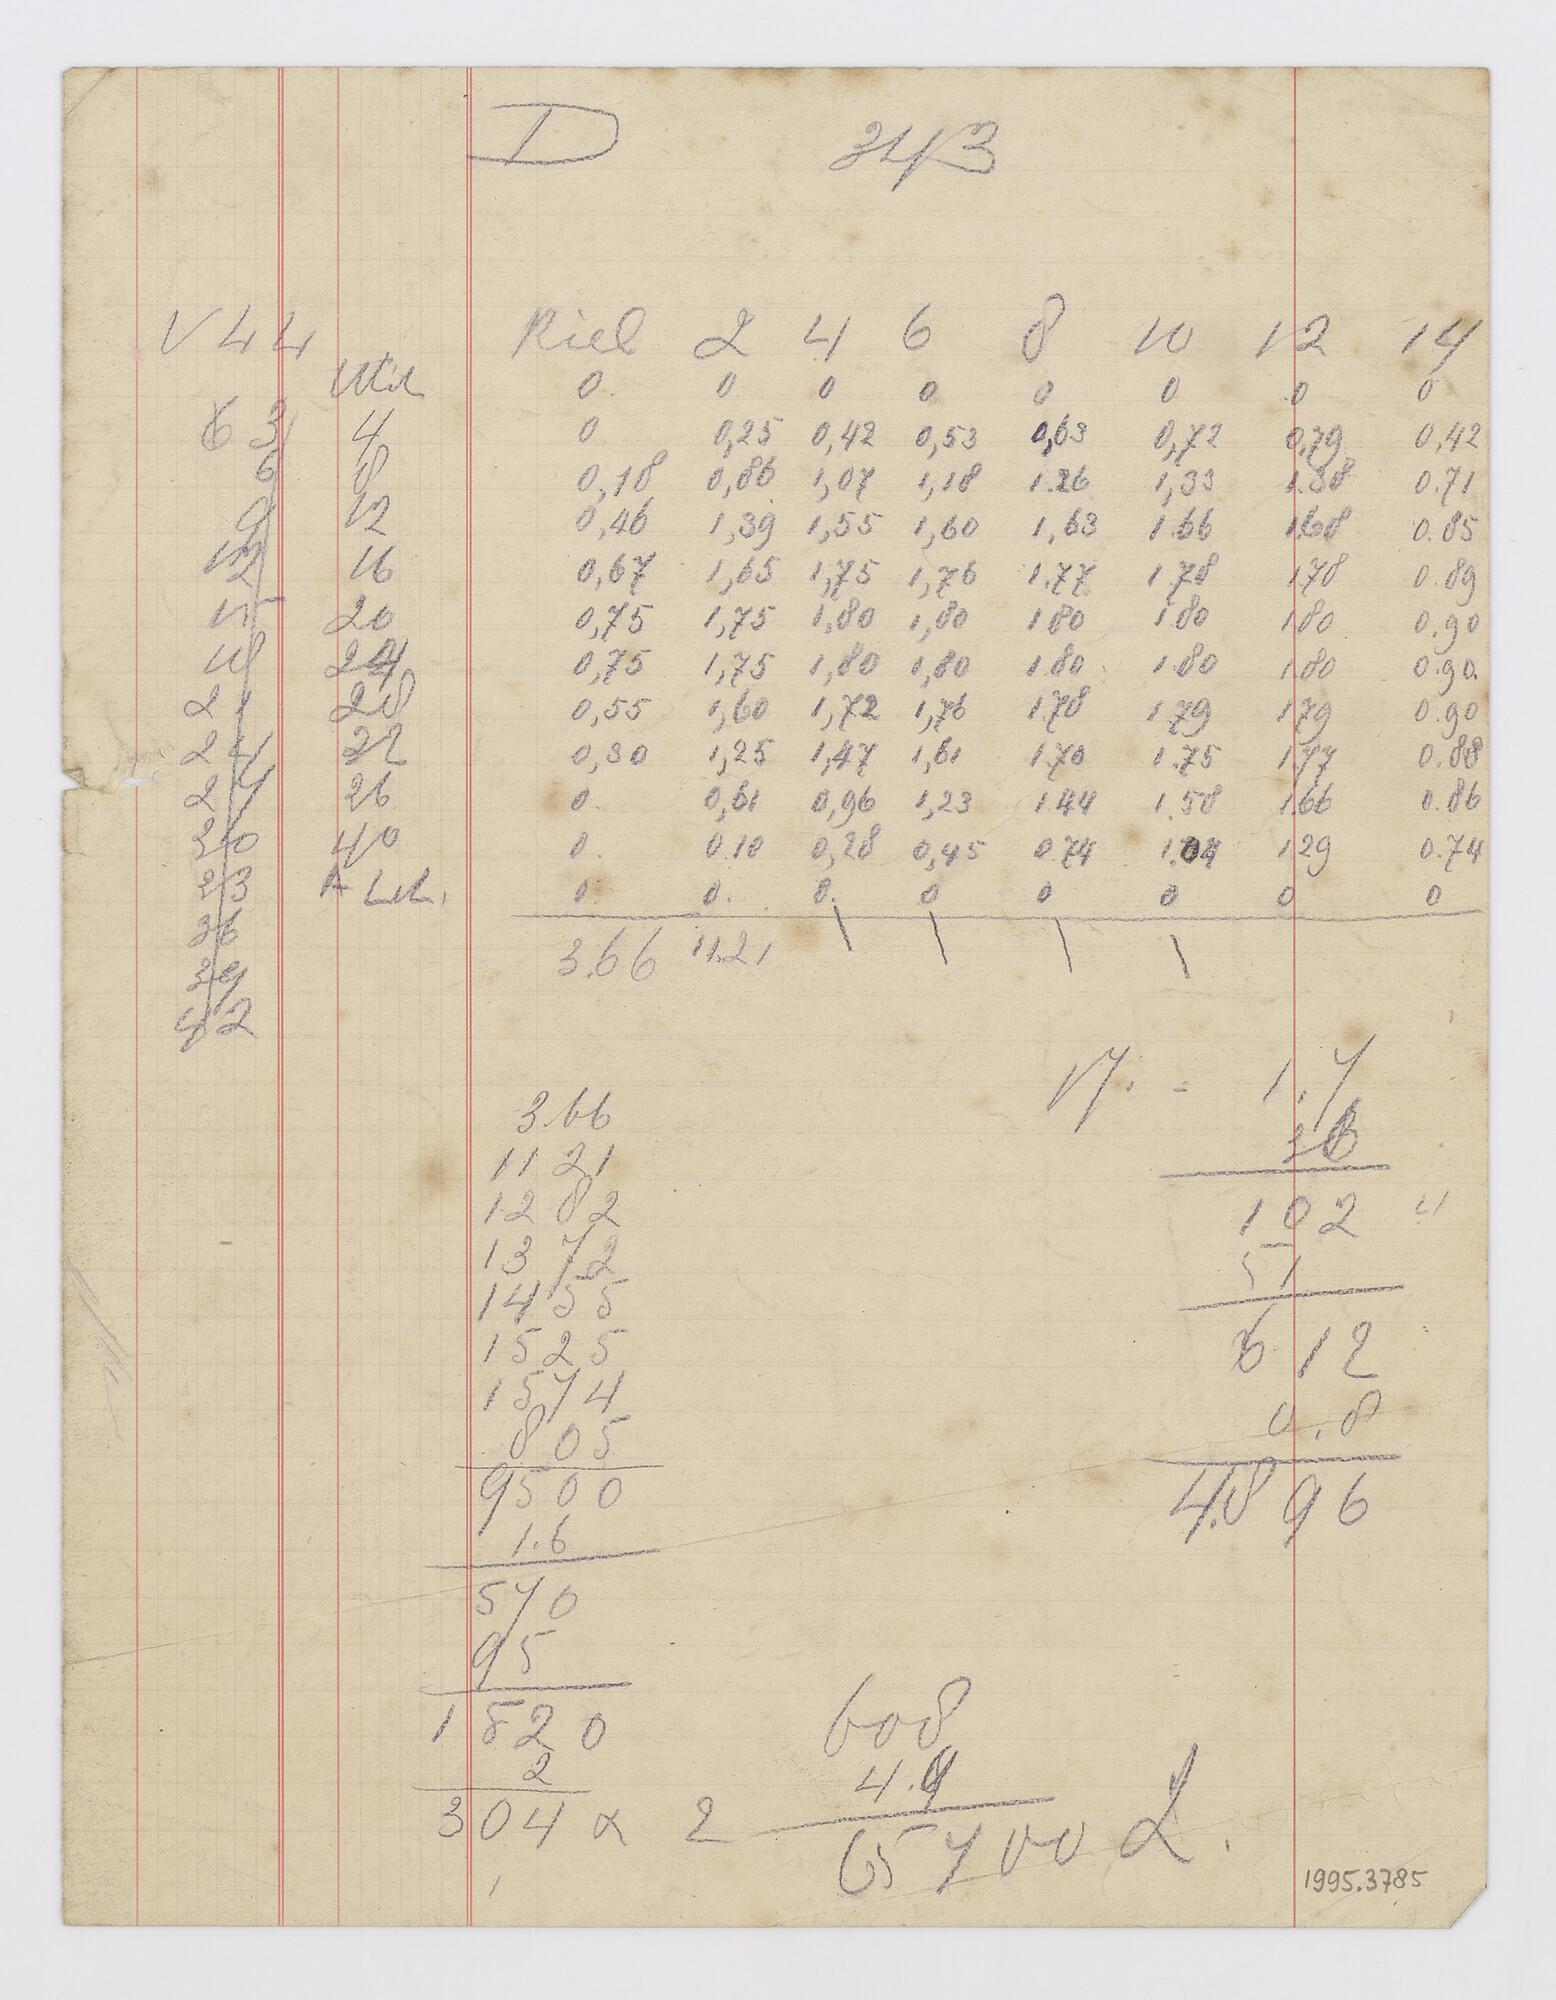 D 343
V 44 Kiel 2 4 6 8 10 12 14
0 0 0 0 0 0 0 0
3 4 0 0,25 0,42 0,53 0,63 0,72 0,79 0,42
6 8 0,18 0,86 1,07 1,18 1.26 1,33 1.38 0.71
9 12 0,46 1,39 1,55 1,60 1,63 1.66 1.68 0.85
12 16 0,67 1,65 1,75 1,76 1.77 1.78 1.78 0.89
15 20 0,75 1,75 1,80 1,80 1.80 1.80 1.80 0.90
18 24 0,75 1,75 1,80 1,80 1.80 1.80 1.80 0.90.
21 28 0,55 1,60 1,72 1,76 1.78 1.79 1.79 0.90
24 32 0,30 1,25 1,47 1,61 1.70 1.75 1.77 0.88
27 36 0. 0,61 0,96 1,23 1.44 1.58 1.66 0.86
30 40 0. 0.10 0,28 0,45 0.74 1.04 1.29 0.74
33 0. 0. 0. 0 0 0 0 0
36 3.66 11.21
39
42
17. = 1.7
3.66
36
1121
102
1282
51
1372
612
1455
0.8
1525
4.896
1574
805
9500
1.6
570
95
1520
2
304 x 2
608
4.9
1995.3785